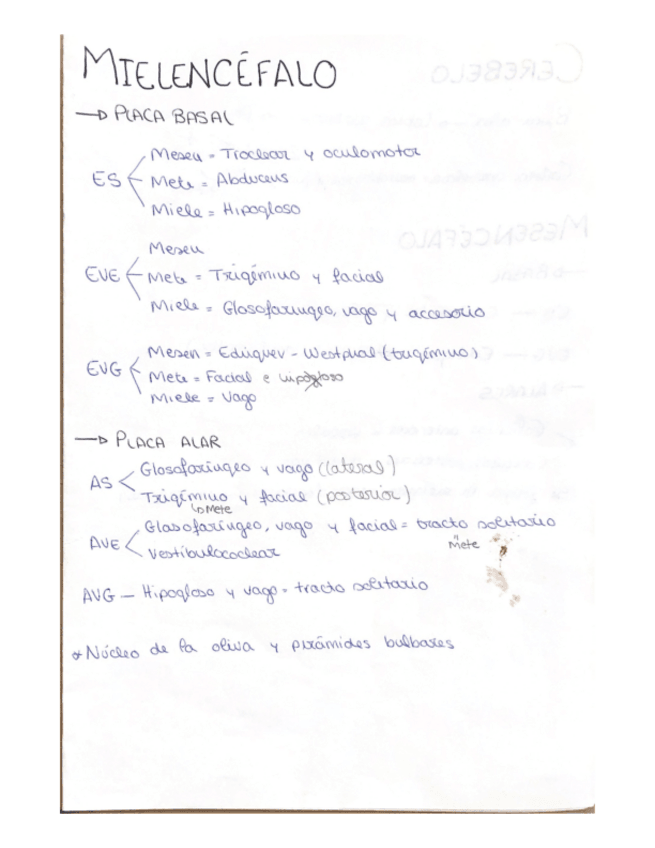 MIELENCÉFALO
→ PLACA BASAL
Mesen = Troclear y oculomotor
ES Mete = Abducens
Miele = Hipogloso
Mesen
EVE Mete = Trigémino y facial
Miele = Glosofaríngeo, vago y accesorio
Mesen = Edinguer - Westphal (trigémino)
EVG Mete = Facial e hipogloso
Miele = Vago
→ PLACA ALAR
Glosofaríngeo y vago (lateral)
AS
Trigémino y facial (posterior)
↳ Mete
Glasofaríngeo, vago y facial = tracto solitario
AVE Mete
Vestibulococlear
AVG — Hipogloso y vago = tracto solitario
* Núcleo de la oliva y pirámides bulbares